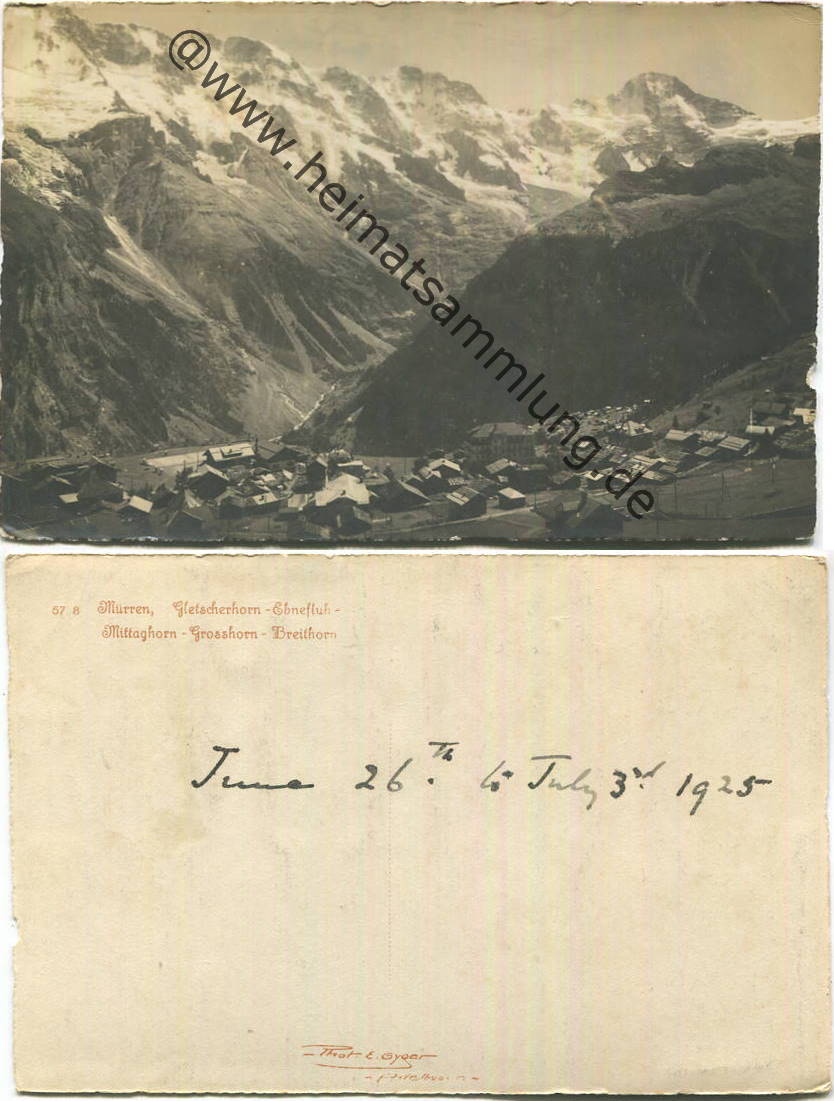 @www.heimatsammlung.de
57 8 Mürren, Gletscherhorn - Ebnefluh -
Mittaghorn - Grosshorn - Breithorn
June 26.Th to July 3rd. 1925
- Phot. E. Gyger -